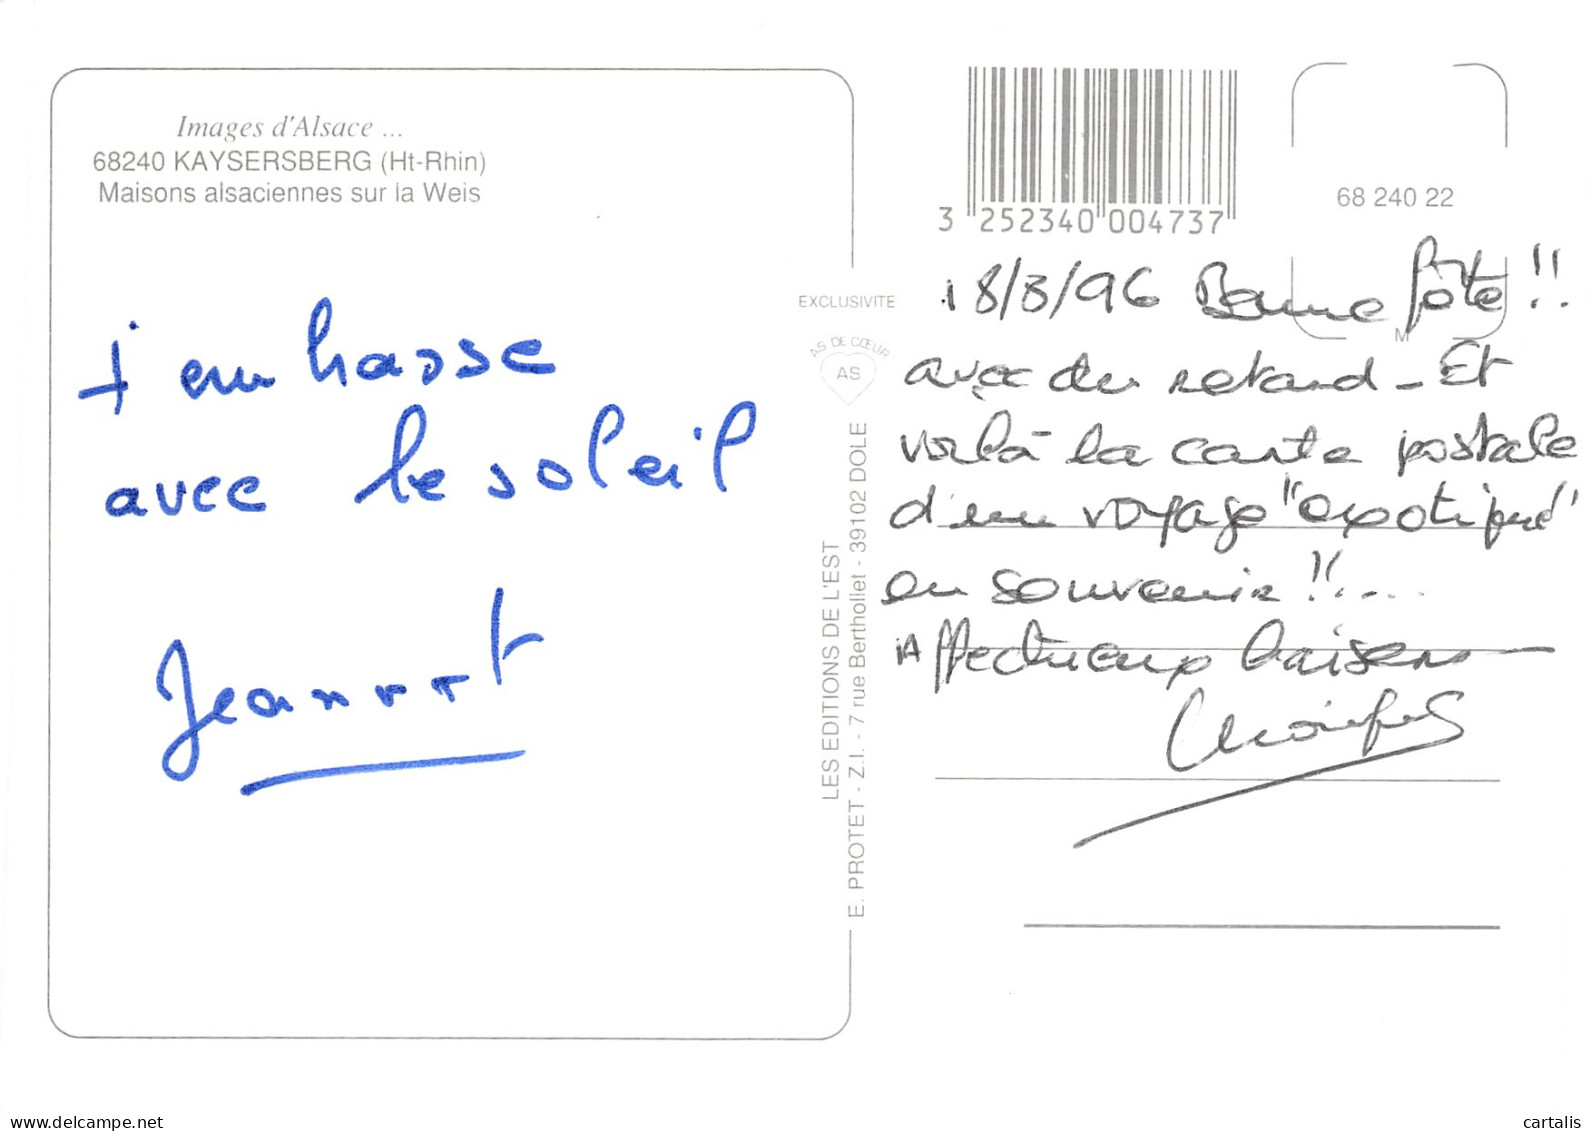 Images d'Alsace ...
68240 KAYSERSBERG (Ht-Rhin)
Maisons alsaciennes sur la Weis
J'embrasse
avec le soleil
Jeannot
EXCLUSIVITE
AS DE CŒUR
AS
LES EDITIONS DE L'EST
E. PROTET - Z.I. - 7 rue Berthollet - 39102 DOLE
3 252340 004737
68 240 22
M
18/8/96 Bonne fête !!
avec du retard - Et
voilà la carte postale
d'un voyage "exotique"
en souvenir !!....
Affectueux baisers
www.delcampe.net
cartalis